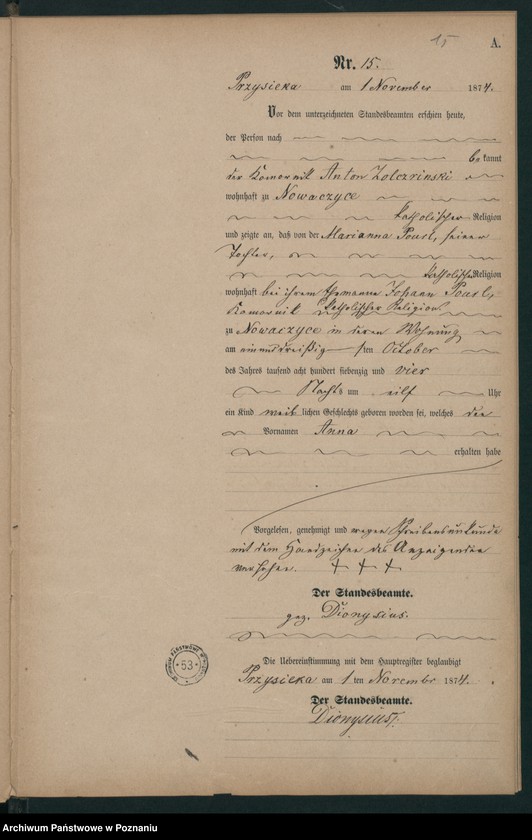 15
A.
Nr. 15.
Przysieka am 1 November 1874.
Vor dem unterzeichneten Standesbeamten erschien heute,
der Person nach
bekannt
der Komornik Anton Zolczrinski
wohnhaft zu Nowaczyce
katholischer Religion
und zeigte an, daß von der Marianna Pourl, seiner
Tochter,
katholischer Religion
wohnhaft bei ihrem Ehemanne Johann Pourl,
Komornik katholischer Religion
zu Nowaczyce in deren Wohnung
am einunddreißigsten October
des Jahres tausend acht hundert siebenzig und vier
Nachts um eilf Uhr
ein Kind weiblichen Geschlechts geboren worden sei, welches den
Vornamen Anna
erhalten habe
Vorgelesen, genehmigt und wegen Schreibensunkunde
mit dem Handzeichen des Anzeigenden
versehen. + + +
Der Standesbeamte.
gez. Dionysius.
Die Uebereinstimmung mit dem Hauptregister beglaubigt
Przysieka am 1 ten Novembr 1874.
Der Standesbeamte.
Dionysius
53
Archiwum Państwowe w Poznaniu